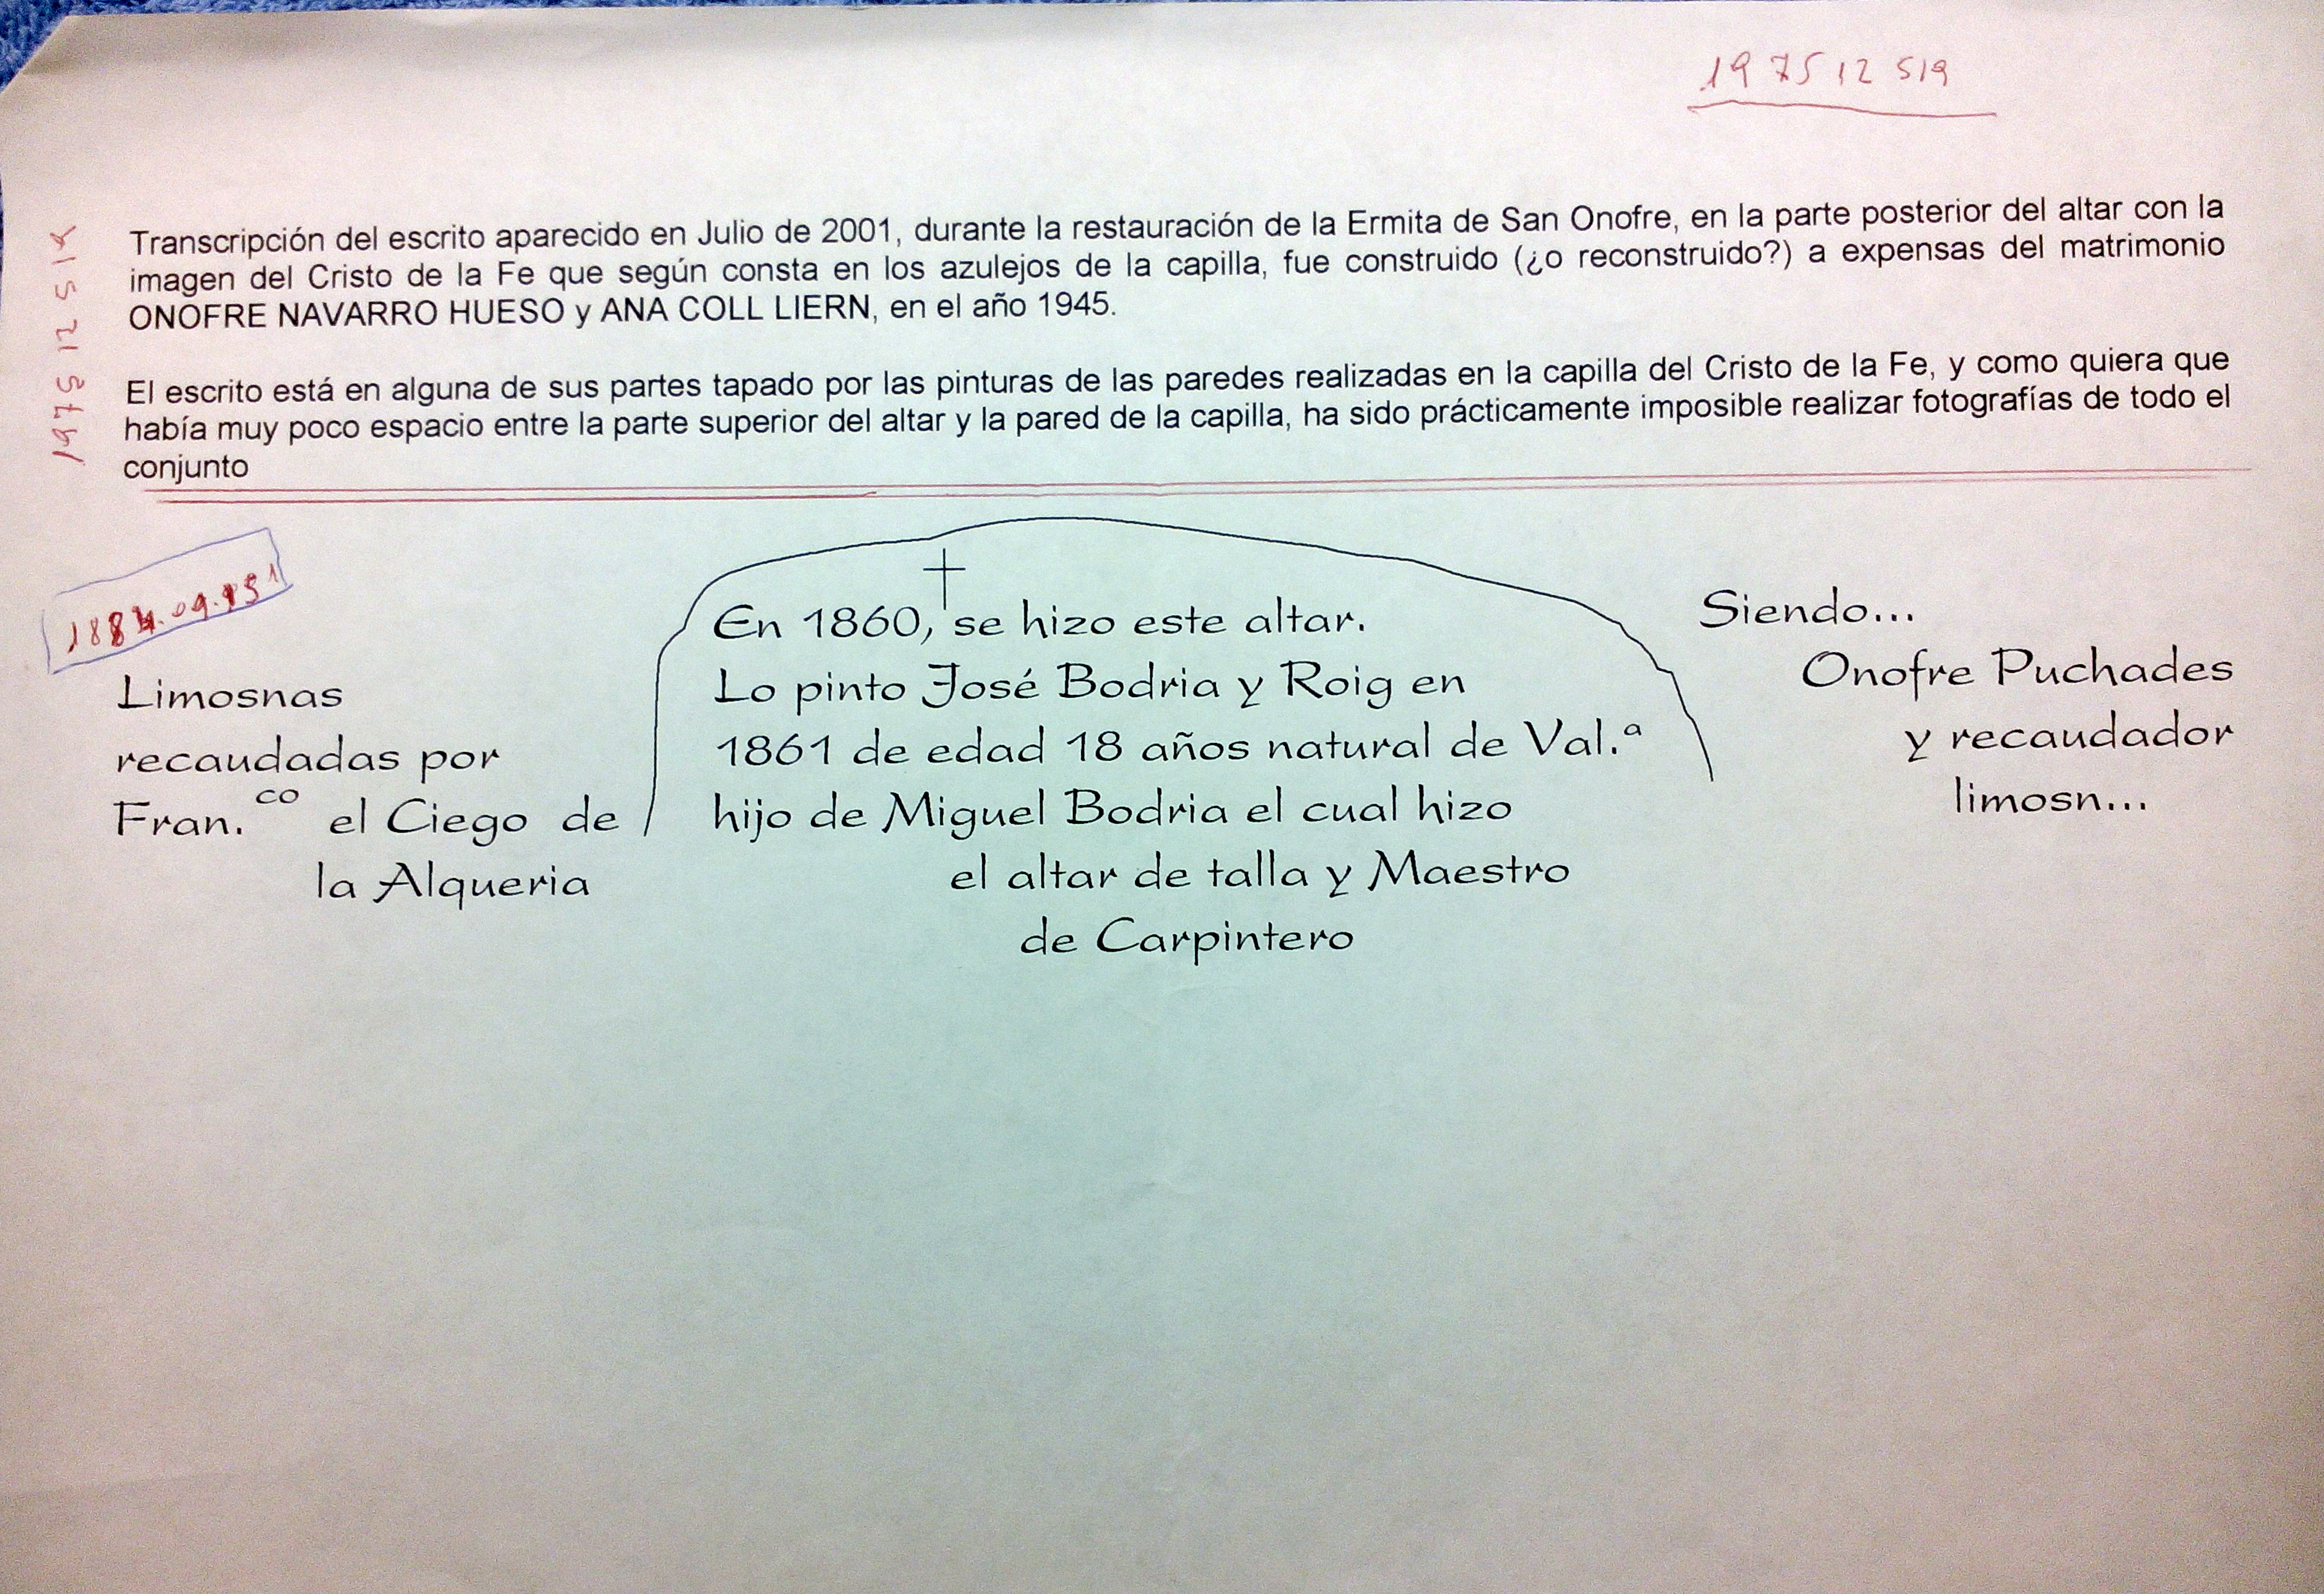 19 75 12 519
Transcripción del escrito aparecido en Julio de 2001, durante la restauración de la Ermita de San Onofre, en la parte posterior del altar con la
imagen del Cristo de la Fe que según consta en los azulejos de la capilla, fue construido (¿o reconstruido?) a expensas del matrimonio
ONOFRE NAVARRO HUESO y ANA COLL LIERN, en el año 1945.
El escrito está en alguna de sus partes tapado por las pinturas de las paredes realizadas en la capilla del Cristo de la Fe, y como quiera que
había muy poco espacio entre la parte superior del altar y la pared de la capilla, ha sido prácticamente imposible realizar fotografías de todo el
conjunto
Limosnas
recaudadas por
Fran.co el Ciego de
la Alqueria
En 1860, se hizo este altar.
Lo pinto José Bodria y Roig en
1861 de edad 18 años natural de Val.ª
hijo de Miguel Bodria el cual hizo
el altar de talla y Maestro
de Carpintero
Siendo...
Onofre Puchades
y recaudador
limosn...